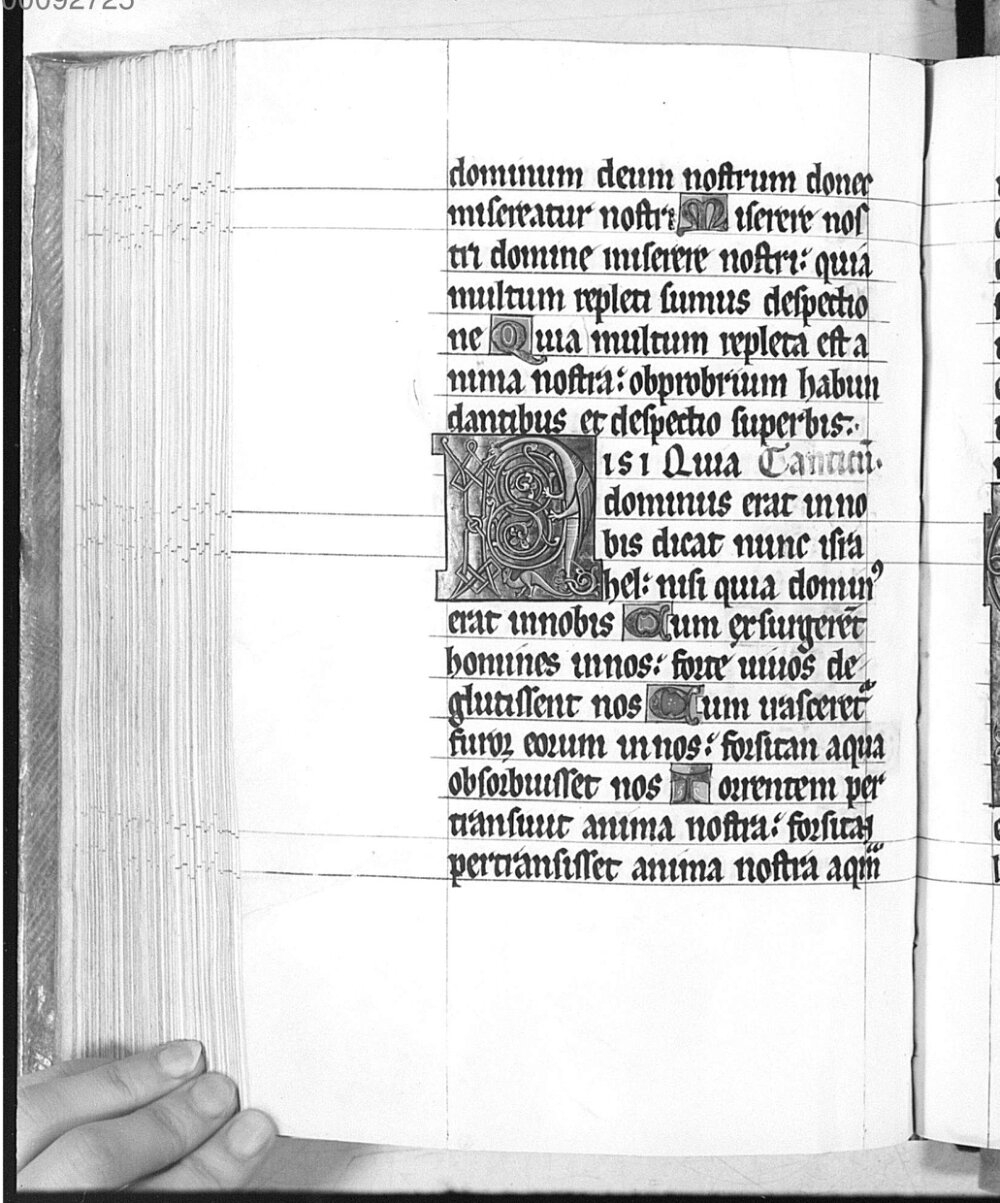 00092725
dominum deum nostrum donec
misereatur nostri Miserere nos
tri domine miserere nostri: quia
multum repleti sumus despectio
ne Quia multum repleta est a
nima nostra: obprobrium habun
dantibus et despectio superbis:
NISI Quia Canticū.
dominus erat in no
bis dicat nunc isra
hel: nisi quia dominꝰ
erat in nobis Cum exsurgerēt
homines in nos: forte uiuos de
glutissent nos Cum irasceret᷑
furor eorum in nos: forsitan aqua
obsorbuisset nos Torrentem per
transiuit anima nostra: forsitan
pertransisset anima nostra aqm̄